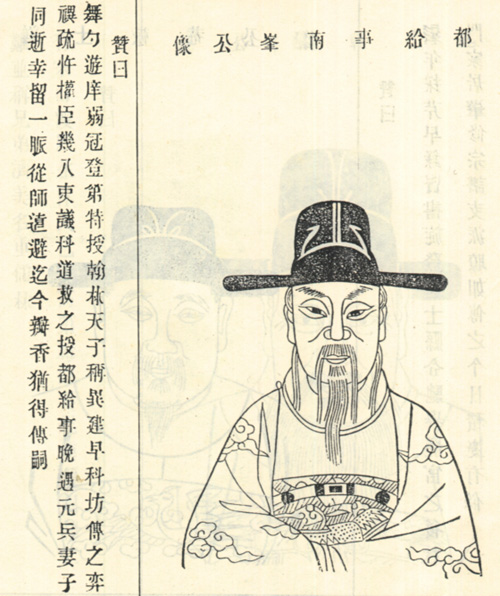 都給事南峯公像
贊曰
舞勺遊庠弱冠登第特授翰林天子稱異建早科坊傳之弈
禩疏忤權臣幾入吏議科道救之授都給事晚遇元兵妻子
同逝幸留一脈從師遁避迄今瓣香猶得傳嗣